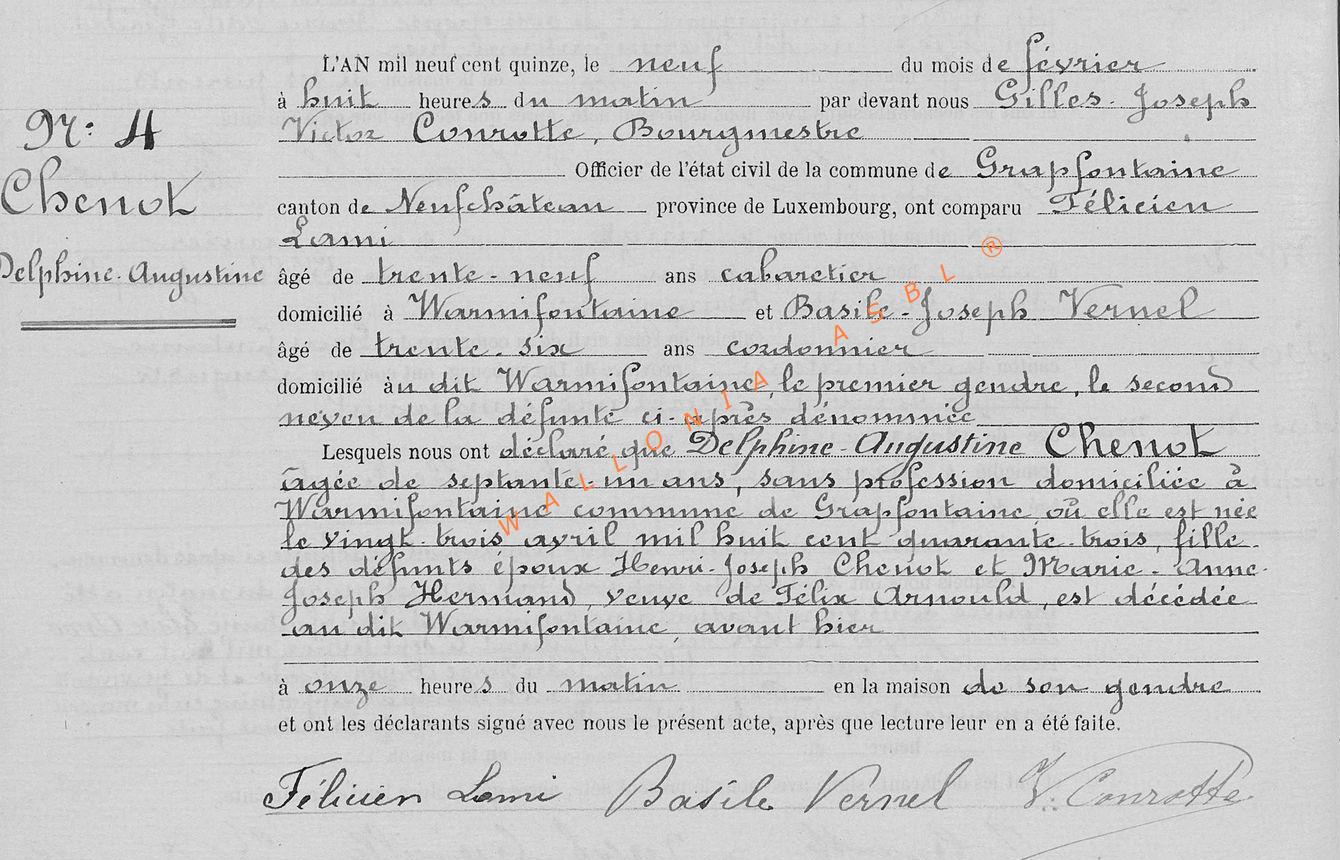 L'AN mil neuf cent quinze, le neuf du mois de février
à huit heures du matin par devant nous Gilles-Joseph
Victor Conrotte, Bourgmestre
Officier de l'état civil de la commune de Grapfontaine
canton de Neufchâteau province de Luxembourg, ont comparu Félicien
Lami
âgé de trente-neuf ans cabaretier
domicilié à Warmifontaine et Basile-Joseph Vernel
âgé de trente-six ans cordonnier
domicilié au dit Warmifontaine, le premier gendre, le second
neveu de la défunte ci-après dénommée
Lesquels nous ont déclaré que Delphine-Augustine Chenot
âgée de septante-un ans, sans profession domiciliée à
Warmifontaine commune de Grapfontaine où elle est née
le vingt-trois avril mil huit cent quarante-trois, fille
des défunts époux Henri-Joseph Chenot et Marie-Anne-
Joseph Hermand, veuve de Félix Arnould, est décédée
au dit Warmifontaine, avant hier
à onze heures du matin en la maison de son gendre
et ont les déclarants signé avec nous le présent acte, après que lecture leur en a été faite.
Félicien Lami Basile Vernel V. Conrotte
Nr: 4
Chenot
Delphine-Augustine
WALLONIA ASBL ®